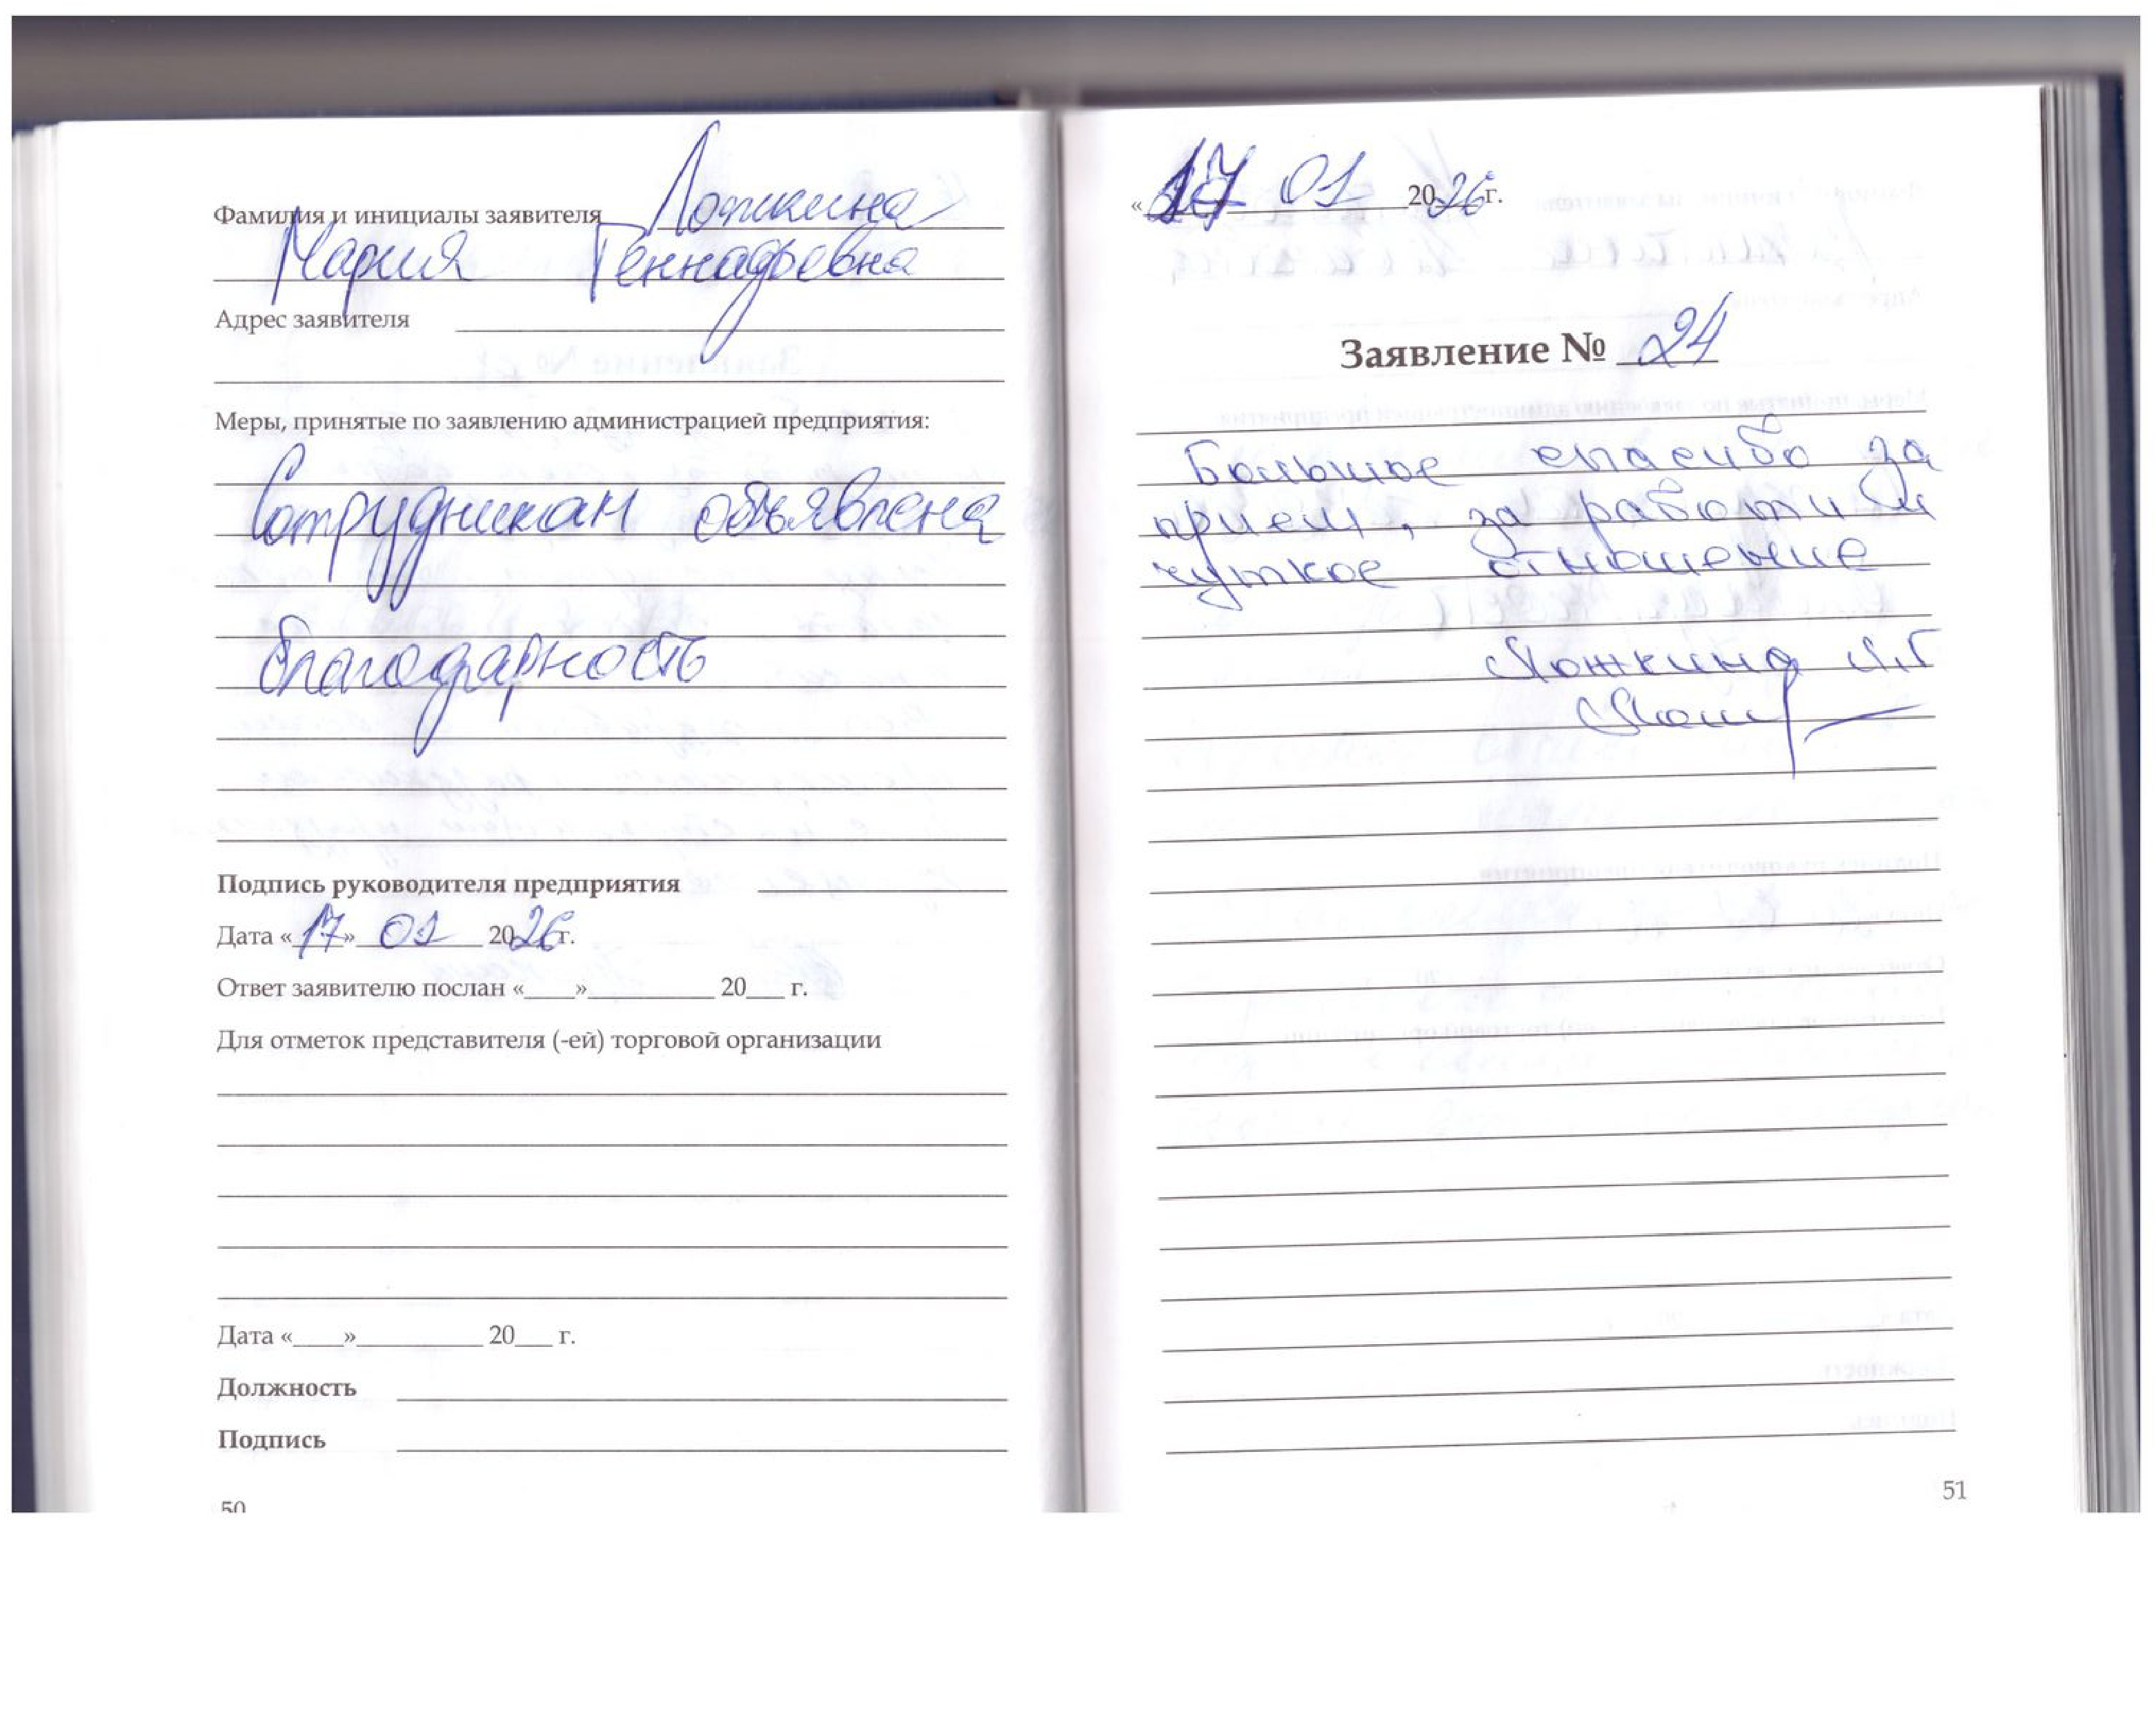 Фамилия и инициалы заявителя Ложкина
Мария Геннадьевна
Адрес заявителя
Меры, принятые по заявлению администрацией предприятия:
Сотрудникам объявлена
благодарность
Подпись руководителя предприятия
Дата «17» 01 2026г.
Ответ заявителю послан «____»__________ 20___ г.
Для отметок представителя (-ей) торговой организации
Дата «____»__________ 20___ г.
Должность
Подпись
50
«17 01 2026г.
Заявление № 24
Большое спасибо за
прием, за работу и
чуткое отношение
Ложкина М.Г
51